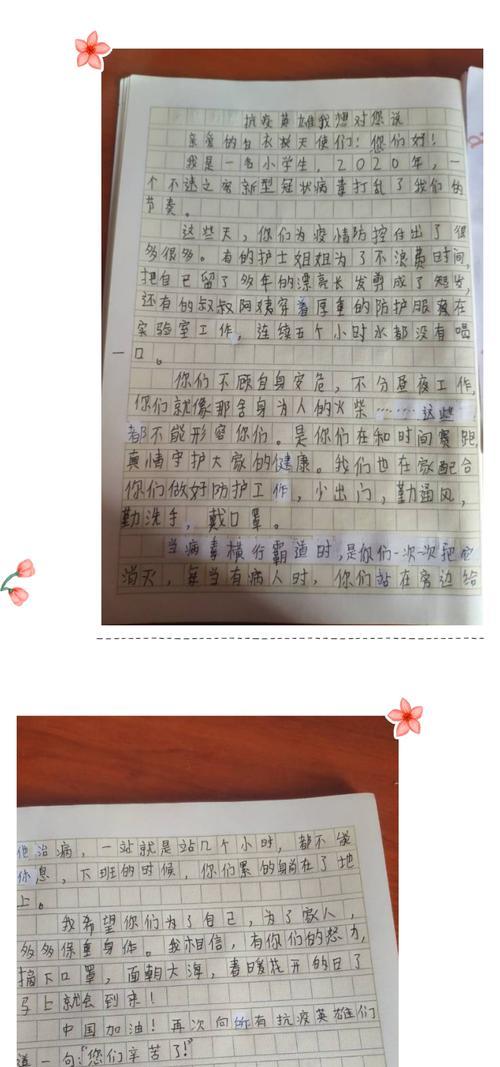 抗疫英雄我想对你说
亲爱的白衣天使们：您们好！
我是一名小学生，2020年，一
个不速之客新型冠状病毒打乱了我们的
节奏。
这些天，你们为疫情防控付出了很
多很多。有的护士姐姐为了不浪费时间，
把自己留了多年的漂亮长发剪成了短发，
还有的叔叔阿姨穿着厚重的防护服在
实验室工作，连续五个小时水都没有喝
一口。
你们不顾自身安危，不分昼夜工作，
你们就像那舍身为人的火柴………这些
都不能形容你们。是你们在和时间赛跑
真情守护大家的健康。我们也在家配合
你们做好防护工作，少出门，勤通风，
勤洗手，戴口罩。
当病毒横行霸道时，是你们一次一次把它
消灭，每当有病人时，你们站在旁边给
他治病，一站就是站几个小时，都不能
休息，下班的时候，你们累的躺在了地
上。
我希望你们为了自己，为了家人，
多多保重身体。我相信，有你们的努力，
摘下口罩，面朝大海，春暖花开的日子
马上就会到来！
中国加油！再次向所有抗疫英雄们
道一句："您们辛苦了！"